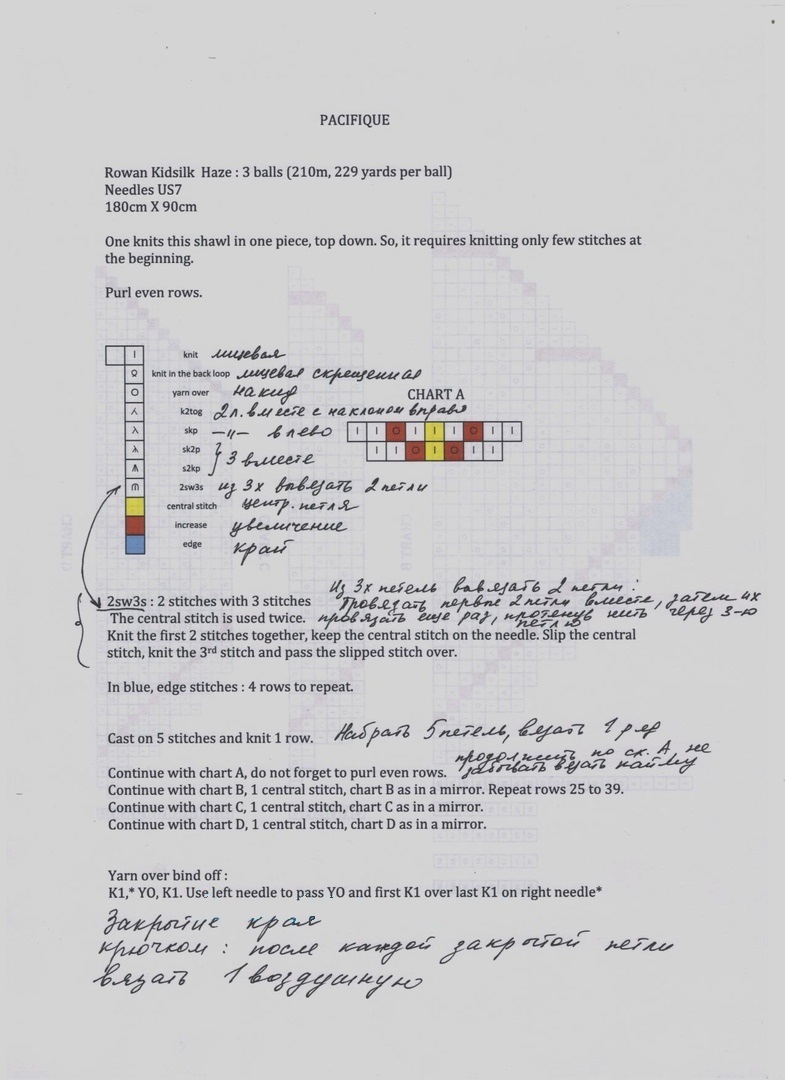 PACIFIQUE
Rowan Kidsilk Haze : 3 balls (210m, 229 yards per ball)
Needles US7
180cm X 90cm
One knits this shawl in one piece, top down. So, it requires knitting only few stitches at
the beginning.
Purl even rows.
I knit лицевая
Ω knit in the back loop лицевая скрещенная
O yarn over накид
CHART A
⋏ k2tog 2 п. вместе с наклоном вправо
λ skp —„— влево
I I O I I I O I I
λ sk2p } 3 вместе
I I O I O I I
⩚ s2kp
m 2sw3s из 3х вывязать 2 петли
central stitch центр. петля
increase увеличение
edge край
Из 3х петель вывязать 2 петли :
2sw3s : 2 stitches with 3 stitches Провязать первые 2 петли вместе, затем их
The central stitch is used twice. провязать еще раз, протянув нить через 3-ю
петлю
Knit the first 2 stitches together, keep the central stitch on the needle. Slip the central
stitch, knit the 3rd stitch and pass the slipped stitch over.
In blue, edge stitches : 4 rows to repeat.
Cast on 5 stitches and knit 1 row. Набрать 5 петель, вязать 1 ряд
продолжить по сх. А, не
Continue with chart A, do not forget to purl even rows. забывать вязать кайму
Continue with chart B, 1 central stitch, chart B as in a mirror. Repeat rows 25 to 39.
Continue with chart C, 1 central stitch, chart C as in a mirror.
Continue with chart D, 1 central stitch, chart D as in a mirror.
Yarn over bind off :
K1,* YO, K1. Use left needle to pass YO and first K1 over last K1 on right needle*
Закрытие края
крючком : после каждой закрытой петли
вязать 1 воздушную